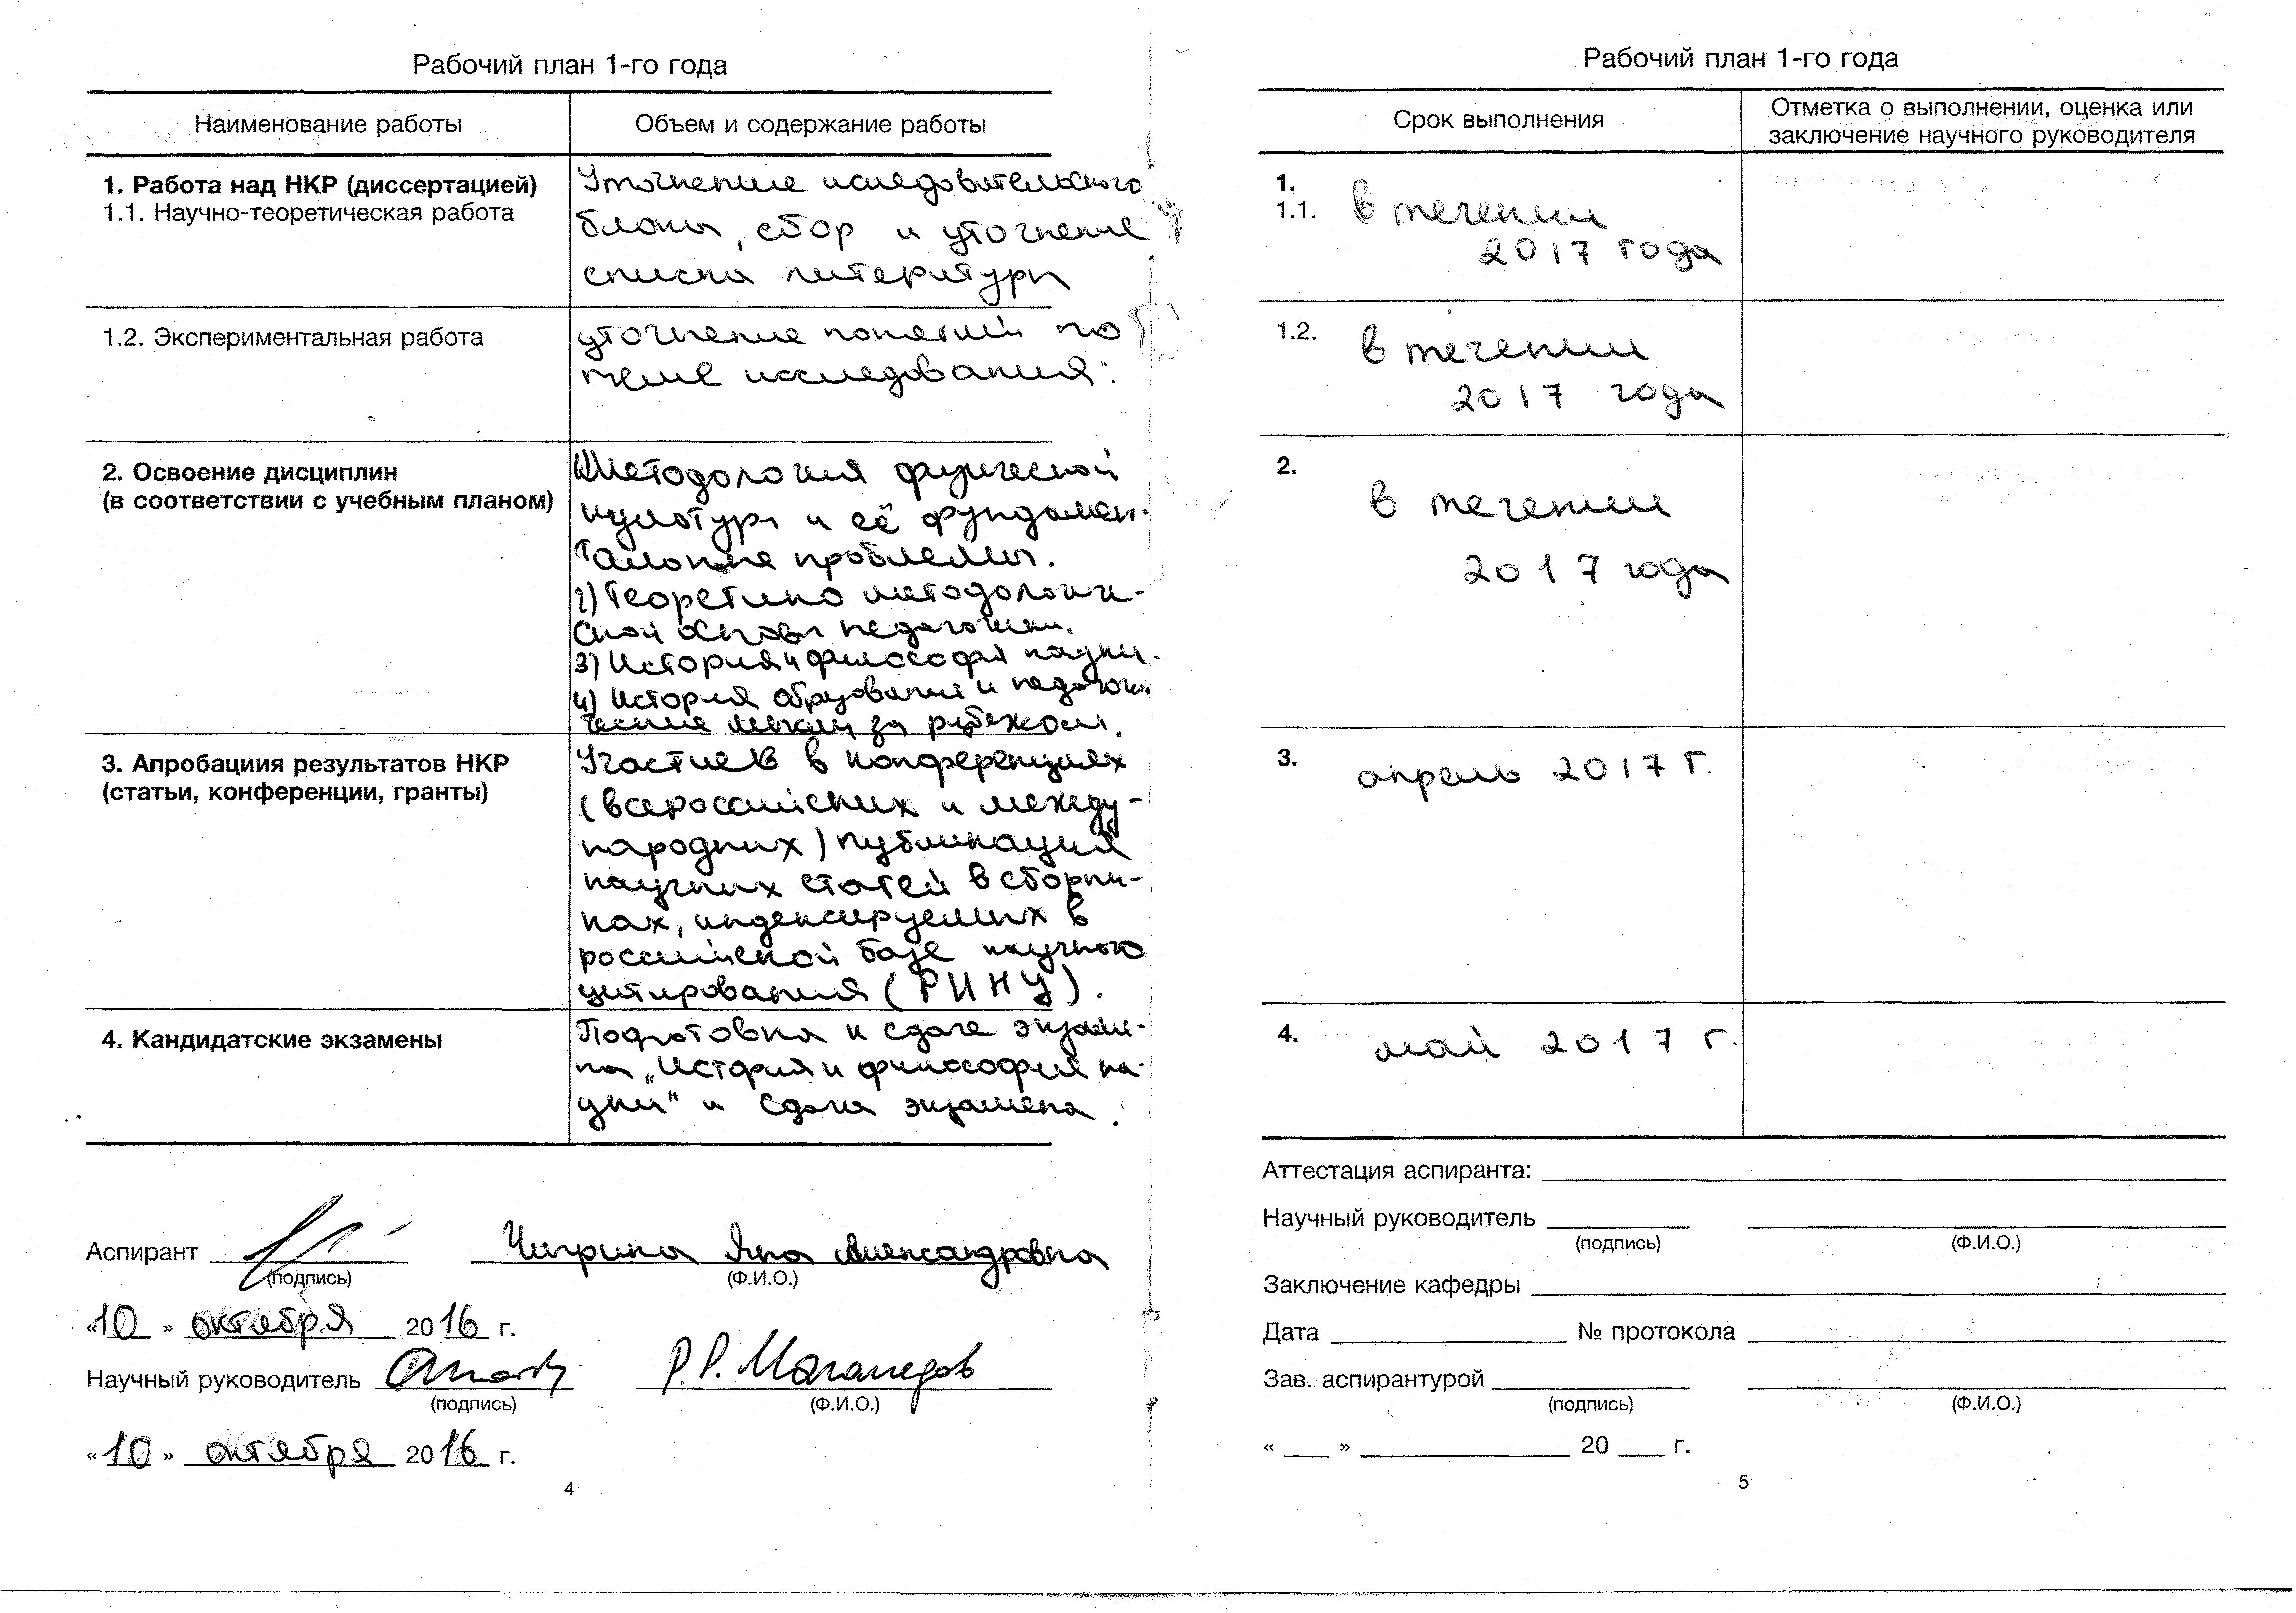 Рабочий план 1-го года
Наименование работы
Объем и содержание работы
1. Работа над НКР (диссертацией)
1.1. Научно-теоретическая работа
Уточнение иследовательского
блока, сбор и уточнение
списка литературы
1.2. Экспериментальная работа
уточнение понятий по
теме исследования.
2. Освоение дисциплин
(в соответствии с учебным планом)
1) Методология физической
культуры и её фундамен-
тальные проблемы.
2) Теоретико методологиче-
ской основы педагогики.
3) История и философия науки.
4) История образования и педагоги-
ческие за рубежом.
3. Апробациия результатов НКР
(статьи, конференции, гранты)
Участие в конференциях
(всероссийских и между-
народных) публикация
научных статей в сборни-
ках, индексируемых в
российской базе научного
цитирования (РИНЦ).
4. Кандидатские экзамены
Подготовка к сдаче экзаме-
на „История и философия на-
уки" и сдача экзамена.
Аспирант
Яна Александровна
(подпись)
(Ф.И.О.)
«10» октября 2016 г.
Научный руководитель
Р.Р. Магомедов
(подпись)
(Ф.И.О.)
«10» октября 2016 г.
4
Рабочий план 1-го года
Срок выполнения
Отметка о выполнении, оценка или
заключение научного руководителя
1.
1.1. в течении
2017 года
1.2. в течении
2017 года
2.
в течении
2017 года
3. апрель 2017 г.
4. май 2017 г.
Аттестация аспиранта:
Научный руководитель
(подпись)
(Ф.И.О.)
Заключение кафедры
Дата № протокола
Зав. аспирантурой
(подпись)
(Ф.И.О.)
« » 20 г.
5